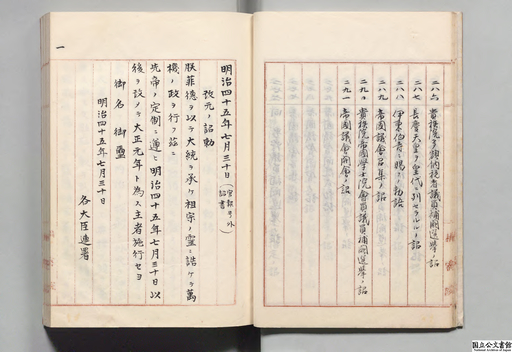 二八六 貴族院多額納税者議員補闕選挙ノ詔
二八七 長慶天皇ヲ皇代ニ列セラルルノ詔
二八八 伊東伯耆ニ賜ヘル勅語
二八九 帝國議會召集ノ詔
二九〇 貴族院帝國學士院會員議員補闕選挙ノ詔
二九一 帝國議會開會ノ詔
一
明治四十五年七月三十日(官報号外 詔書)
改元ノ詔勅
朕菲德ヲ以テ大統ヲ承ケ祖宗ノ霊ニ誥ケテ萬
機ノ政ヲ行フ茲ニ
先帝ノ定制ニ遵ヒ明治四十五年七月三十日以
後ヲ改メテ大正元年ト為ス主者施行セヨ
御名御璽
明治四十五年七月三十日
各大臣連署
国立公文書館
National Archives of Japan